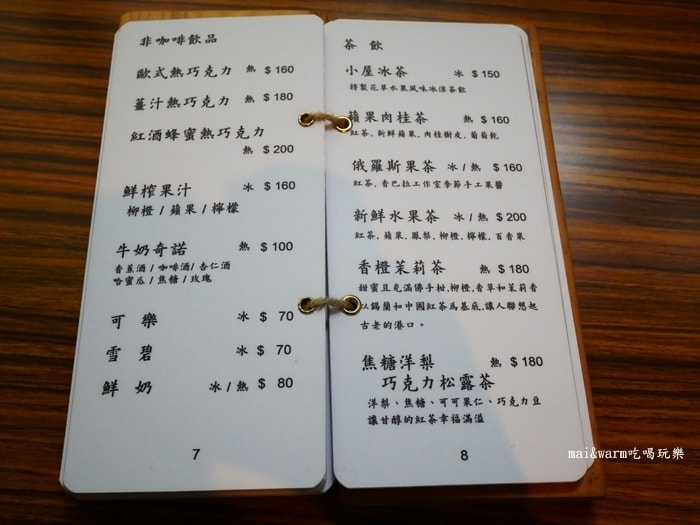 非咖啡飲品
歐式熱巧克力 熱 $ 160
薑汁熱巧克力 熱 $ 180
紅酒蜂蜜熱巧克力
熱 $ 200
鮮榨果汁 冰 $ 160
柳橙 / 蘋果 / 檸檬
牛奶奇諾 熱 $ 100
香蕉酒 / 咖啡酒 / 杏仁酒
哈蜜瓜 / 焦糖 / 玫瑰
可樂 冰 $ 70
雪碧 冰 $ 70
鮮奶 冰 / 熱 $ 80
7
茶飲
小屋冰茶 冰 $ 150
特製花草水果風味冰涼茶飲
蘋果肉桂茶 熱 $ 160
紅茶, 新鮮蘋果, 肉桂樹皮, 葡萄乾
俄羅斯果茶 冰 / 熱 $ 160
紅茶, 香巴拉工作室季節手工果醬
新鮮水果茶 冰 / 熱 $ 200
紅茶, 蘋果, 鳳梨, 柳橙, 檸檬, 百香果
香橙茉莉茶 熱 $ 180
甜蜜且充滿佛手柑,柳橙,香草和茉莉香
以錫蘭和中國紅茶為基底,讓人聯想起
古老的港口。
焦糖洋梨 熱 $ 180
巧克力松露茶
洋梨、焦糖、可可果仁、巧克力豆
讓甘醇的紅茶幸福滿溢
8
mai&warm吃喝玩樂